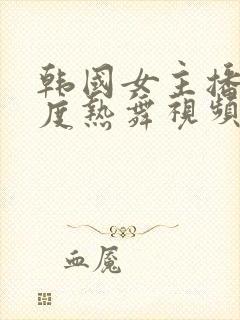 韩国女主播
度热舞视频
血魇